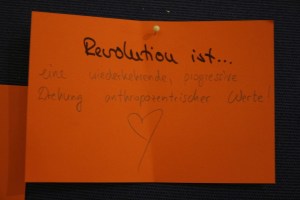 Revolution ist...
eine wiederkehrende, progressive
Drehung anthropozentrischer Werte!